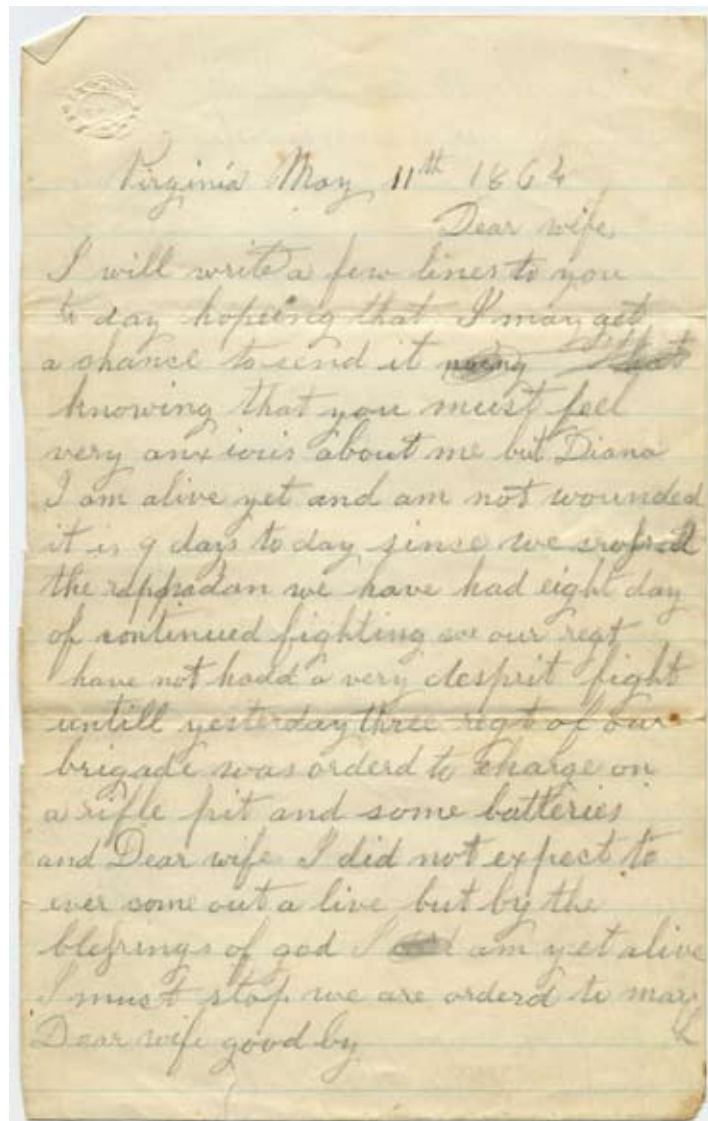 Virginia May 11th 1864
Dear wife
I will write a few lines to you
to day hopeing that I may get
a chance to send it
knowing that you must feel
very anxious about me but Diana
I am alive yet and am not wounded
it is 9 days to day since we crossed
the rappadan we have had eight day
of continued fighting we our regt
have not hadd a very desprit fight
untill yesterday three regt of our
brigade was orderd to charge on
a rifle pit and some batteries
and Dear wife I did not expect to
ever come out a live but by the
blessings of god I am yet alive
I must stop we are orderd to march
Dear wife good by